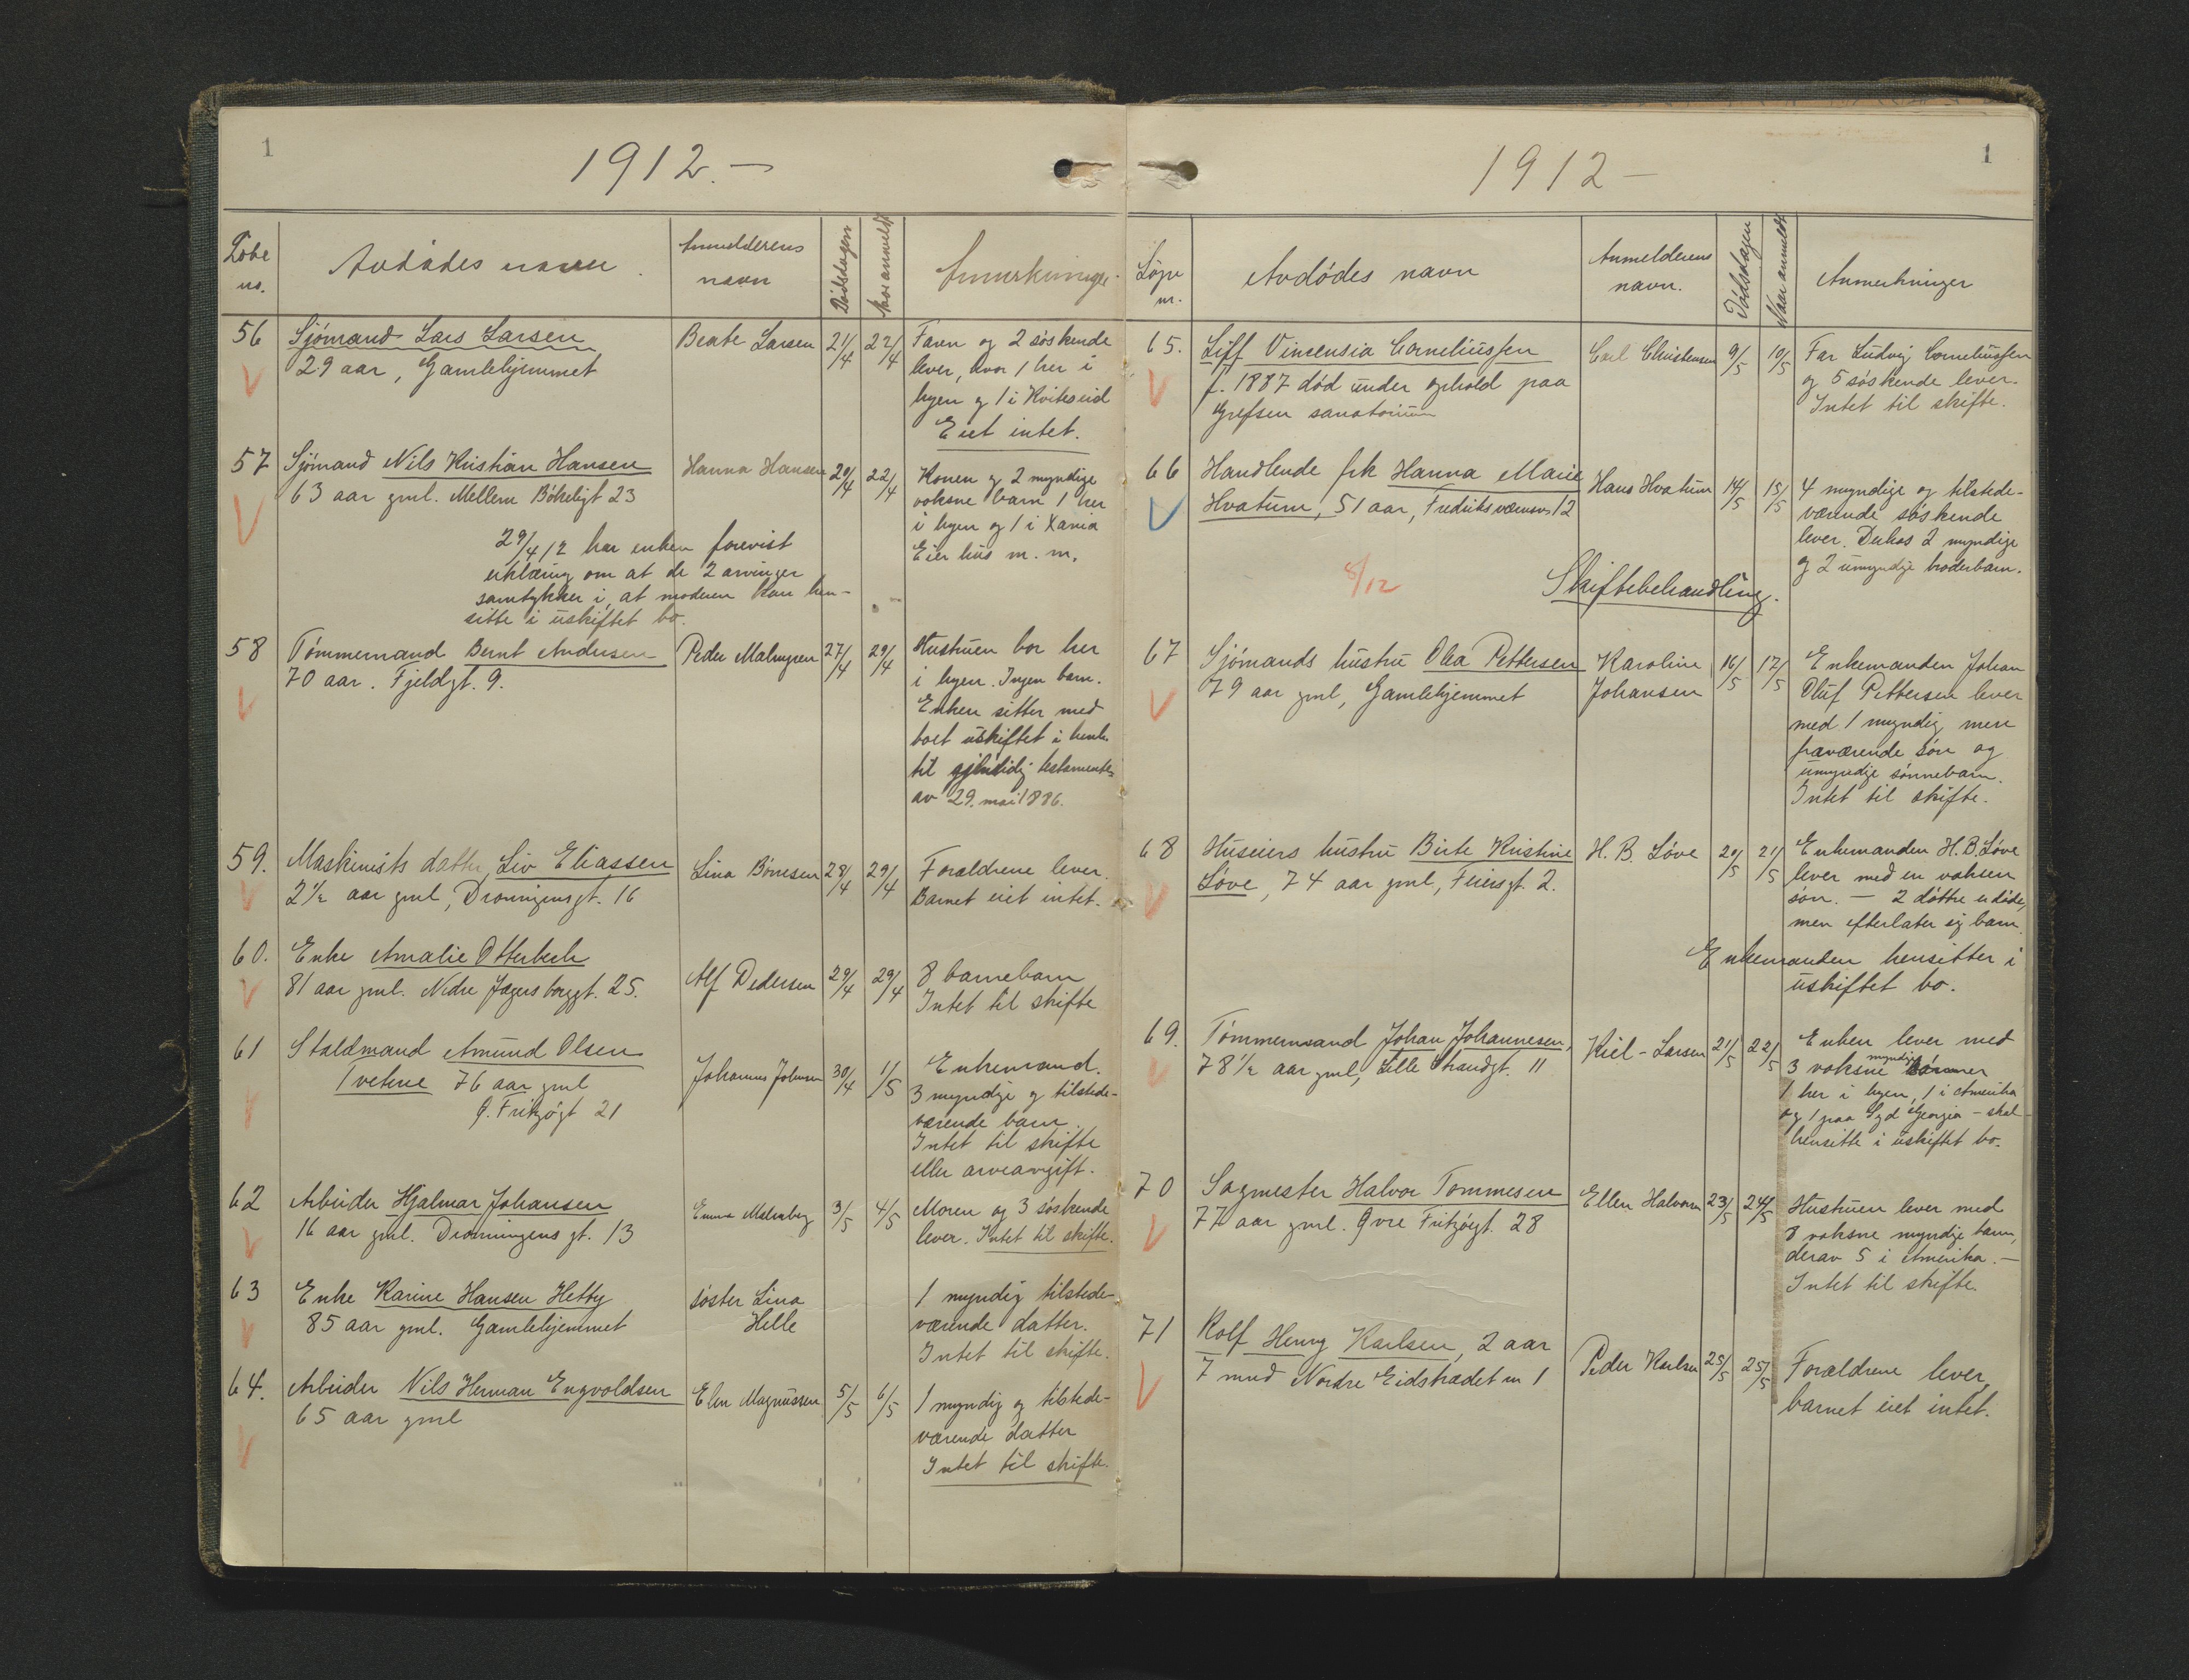 1
1912.—
Løbe no.
Avdødes navn.
Anmelderens navn
Dødsdagen
Naar anmeldt
Anmerkninger
56 Sjømand Lars Larsen
29 aar, Gamlehjemmet
Beate Larsen 21/4 22/4
Faren og 2 søskende
lever, hvor 1 her i
byen og 1 i Kviteseid
Eiet intet.
57 Sjømand Nils Kristian Hansen
63 aar gml. Mellem Bøkeligt 23
Hanna Hansen 20/4 22/4
Konen og 2 myndige
voksne barn 1 her
i byen og 1 i Xania
Eier hus m. m.
29/4 12 har enken forevist
erklæring om at de 2 arvinger
samtykker i, at moderen kan hen-
sitte i uskiftet bo.
58 Tømmermand Bernt Andersen
70 aar. Fjeldgt. 9.
Peder Malmgren 27/4 29/4
Hustruen bor her
i byen. Ingen barn.
Enken sitter med
boet uskiftet i henh.
til gjensidig testamente
av 29. mai 1886.
59. Maskinists datter Liv Eliassen
2½ aar gml, Dronningensgt. 16
Lina Børresen 28/4 29/4
Forældrene lever.
Barnet eiet intet.
60. Enke Amalie Otterbech
81 aar gml. Nedre Jegersborggt. 25.
Alf Pedersen 29/4 29/4
8 barnebarn
Intet til skifte
61 Staldmand Amund Olsen
Tvetene 76 aar gml
Ø. Fritzøgt 21
Johannes Johnsen 30/4 1/5
Enkemand.
3 myndige og tilstede-
værende barn.
Intet til skifte
eller arveavgift.
62 Arbeider Hjalmar Johansen
16 aar gml. Dronningens gt. 13
Emma Malmberg 3/5 4/5
Moren og 3 søskende
lever. Intet til skifte.
63 Enke Karine Hansen Hetby
85 aar gml. Gamlehjemmet
søster Lina
Helle
1 myndig tilstede-
værende datter.
Intet til skifte.
64. Arbeider Nils Herman Engvoldsen
65 aar gml
Elen Magnussen 5/5 6/5
1 myndig og tilstede-
værende datter
Intet til skifte.
1
1912—
Løpe nr.
Avdødes navn
Anmelderens navn.
Dødsdagen
Naar anmeldt
Anmerkninger
65. Liff Vincensia Corneliussen
f. 1887 død under ophold paa
Grefsen sanatorium
Carl Christensen 9/5 10/5
Far Ludvig Corneliussen
og 5 søskende lever.
Intet til skifte.
66 Handlende frk Hanna Marie
Hvatum, 51 aar, Fredriksværnsv. 12
Hans Hvatum 14/5 15/5
4 myndige og tilstede-
værende søskende
lever. Desuten 2 myndige
og 2 umyndige broderbarn.
8/12
Skiftebehandling.
67 Sjømands hustru Olea Pettersen
79 aar gml, Gamlehjemmet
Karoline
Johansen
16/5 17/5
Enkemanden Johan
Oluf Pettersen lever
med 1 myndig, men
fraværende søn og
umyndige sønnebarn.
Intet til skifte.
68 Huseiers hustru Birte Kristine
Løve, 74 aar gml, Feiersgt. 2.
H. B. Løve 20/5 21/5
Enkemanden H. B. Løve
lever med en voksen
søn. — 2 døttre er døde,
men efterlater sig barn.
Enkemanden hensitter i
uskiftet bo.
69. Tømmermand Johan Johannesen,
78½ aar gml, Lille Strandgt. 11
Kiel-Larsen 21/5 22/5
Enken lever med
3 voksne myndige sønner
1 her i byen, 1 i Amerika
og 1 paa Syd Georgia – skal
hensitte i uskiftet bo.
70 Sagmester Halvor Tommesen
77 aar gml. Øvre Fritzøgt. 28
Ellen Halvorsen 23/5 24/5
Hustruen lever med
8 voksne myndige barn,
derav 5 i Amerika. —
Intet til skifte.
71 Rolf Henry Karlsen, 2 aar
7 mnd Nordre Eidstrædet nr 1
Peder Karlsen 25/5 25/5
Forældrene lever,
barnet eiet intet.